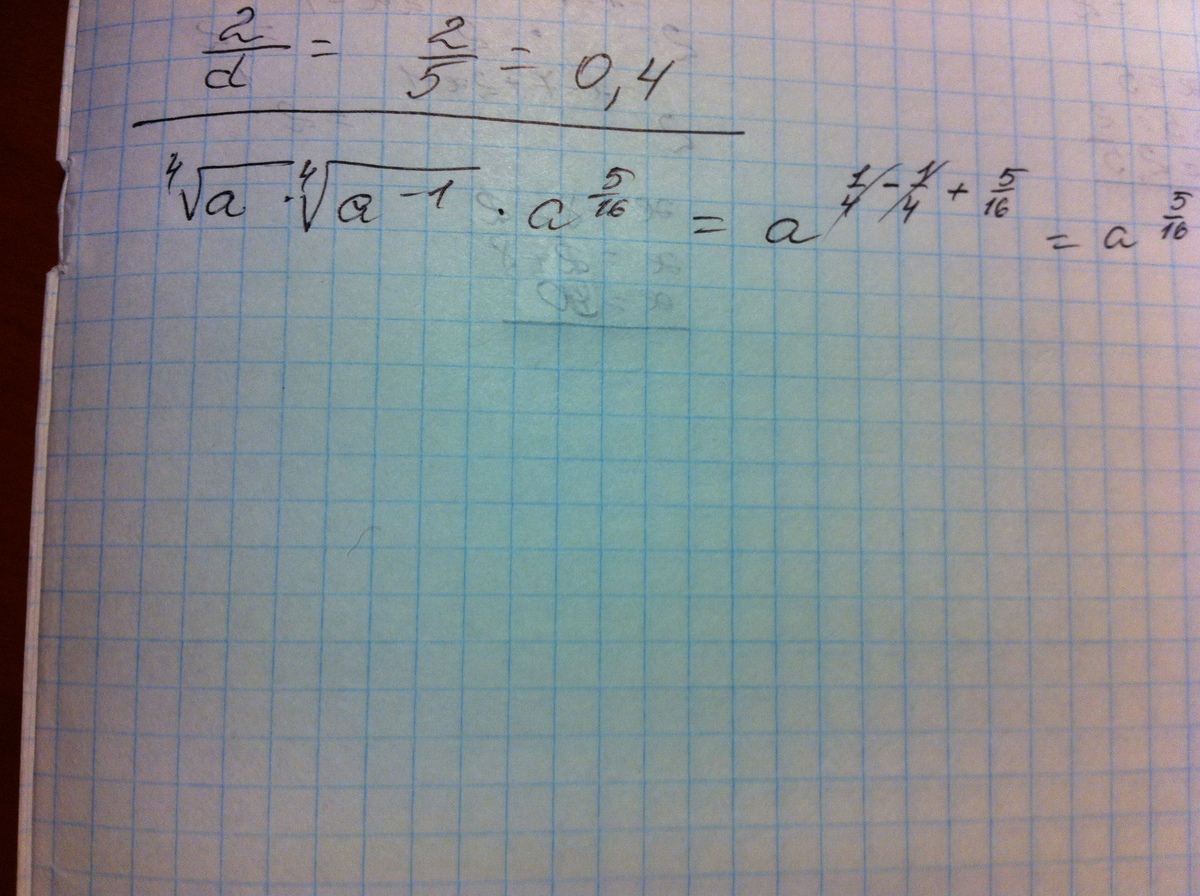 2/d = 2/5 = 0,4
⁴√a · ⁴√(a⁻¹) · a^(5/16) = a^(1/4 - 1/4 + 5/16) = a^(5/16)